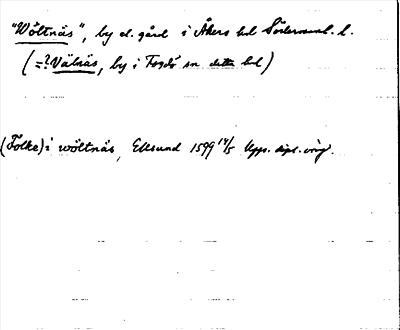 "Wöltnäs", by el. gård i Åkers hd Söderman. l.
(=? Välnäs, by i Fogdö sn detta hd)
(Folke) i wöltnäs, Edsund 1599 14/5 Upps. dipl. orig.